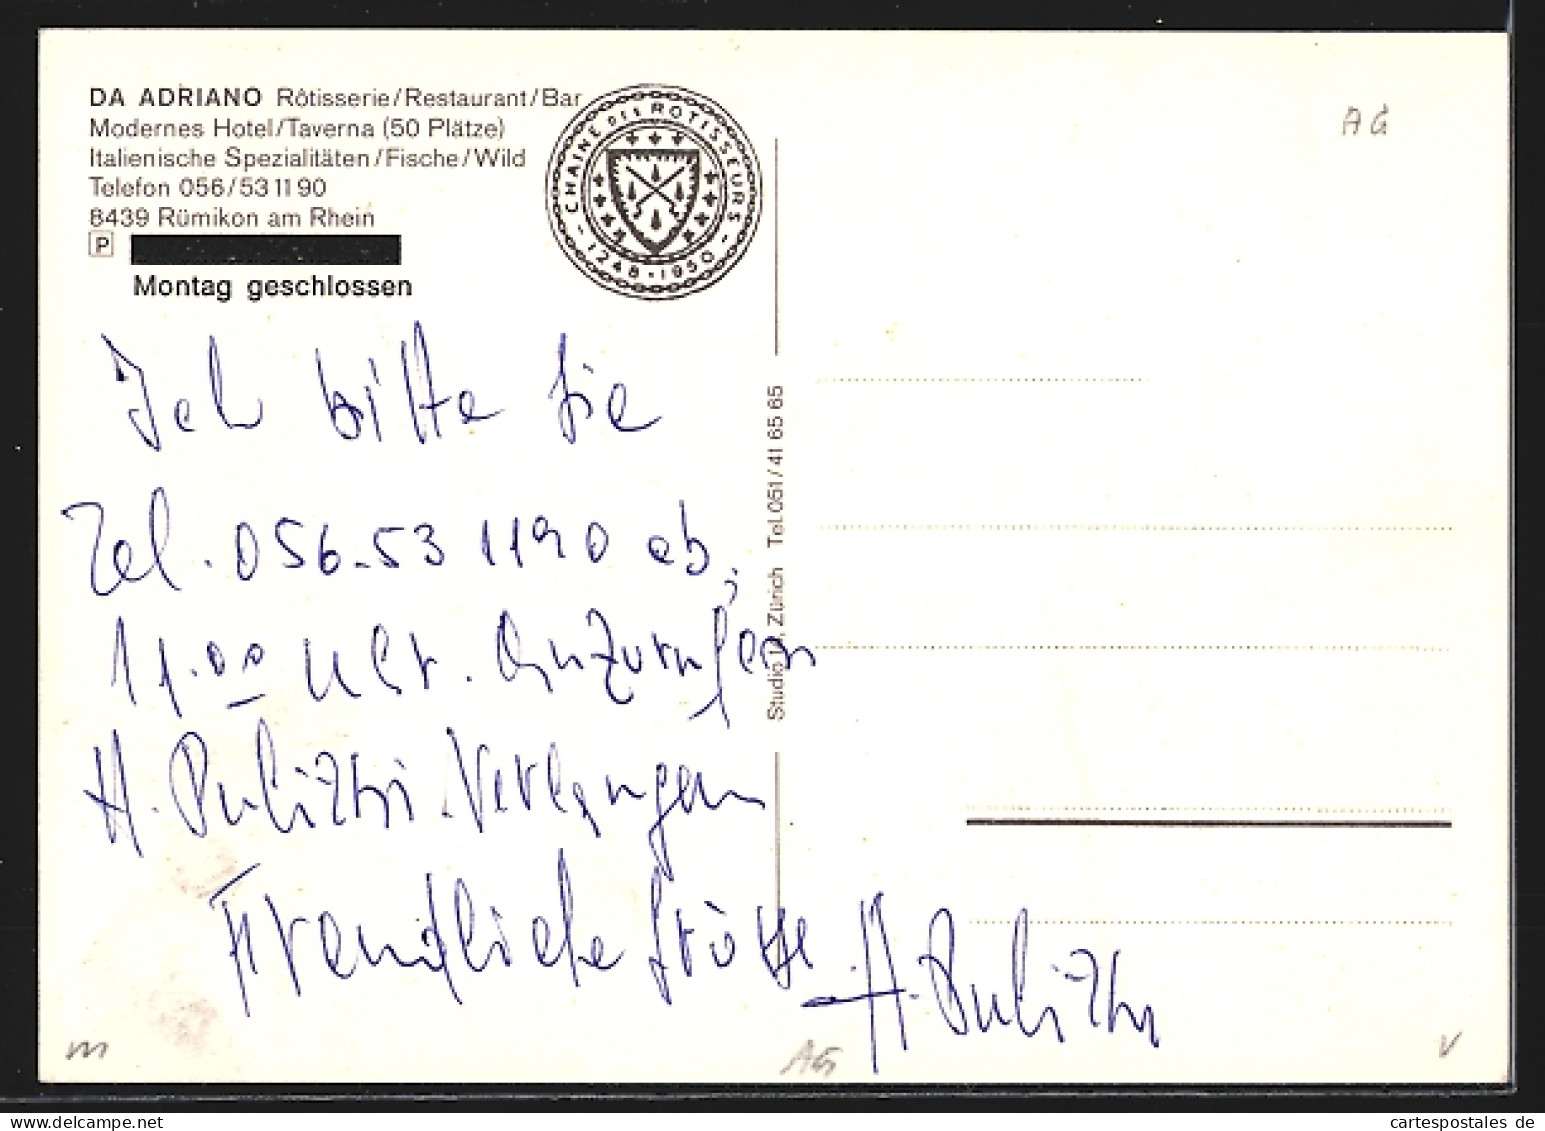 DA ADRIANO Rôtisserie/Restaurant/Bar
Modernes Hotel/Taverna (50 Plätze)
Italienische Spezialitäten/Fische/Wild
Telefon 056/53 11 90
8439 Rümikon am Rhein
P
Montag geschlossen
CHAINE DES ROTISSEURS
1248 · 1950
AG
Ich bitte Sie
Tel. 056-53 1190 ab,
11.00 Uhr. Anzurufen
H. Verlangen
Freundliche Grüsse
H.
Studio Zürich Tel. 051/41 65 65
m
AG
V
cartespostales de